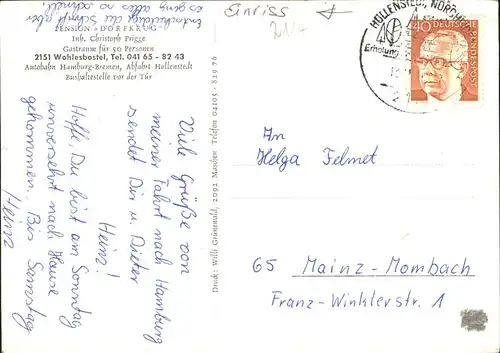 Entschuldige die Schrift aber
es ging alles so schnell.
PENSION »DORFKRUG«
Inh. Christoph Prigge
Gastraum für 50 Personen
2151 Wohlesbostel, Tel. 041 65 - 82 43
Autobahn Hamburg-Bremen, Abfahrt Hollenstedt
Bushaltestelle vor der Tür
Viele Grüße von
meiner Fahrt nach Hamburg
sendet Dir u. Dieter
Heinz!
Hoffe, Du bist am Sonntag
unversehrt nach Hause
gekommen. Bis Samstag
Heinz
Druck: Willi Grünwald, 2092 Maschen Telefon 04105 - 829 76
Einriss
21/4
HOLLENSTEDT, NORDH
Erholung
40 DEUTSCHE BUNDESPOST
An
Helga Felmet
65 Mainz-Mombach
Franz-Winklerstr. 1